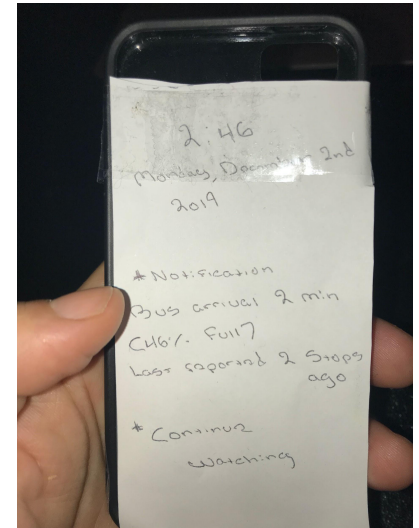 2:46
Monday, December 2nd
2019
* Notification
Bus arrival 2 min
[46% Full]
Last reported 2 stops
ago
* Continue
watching